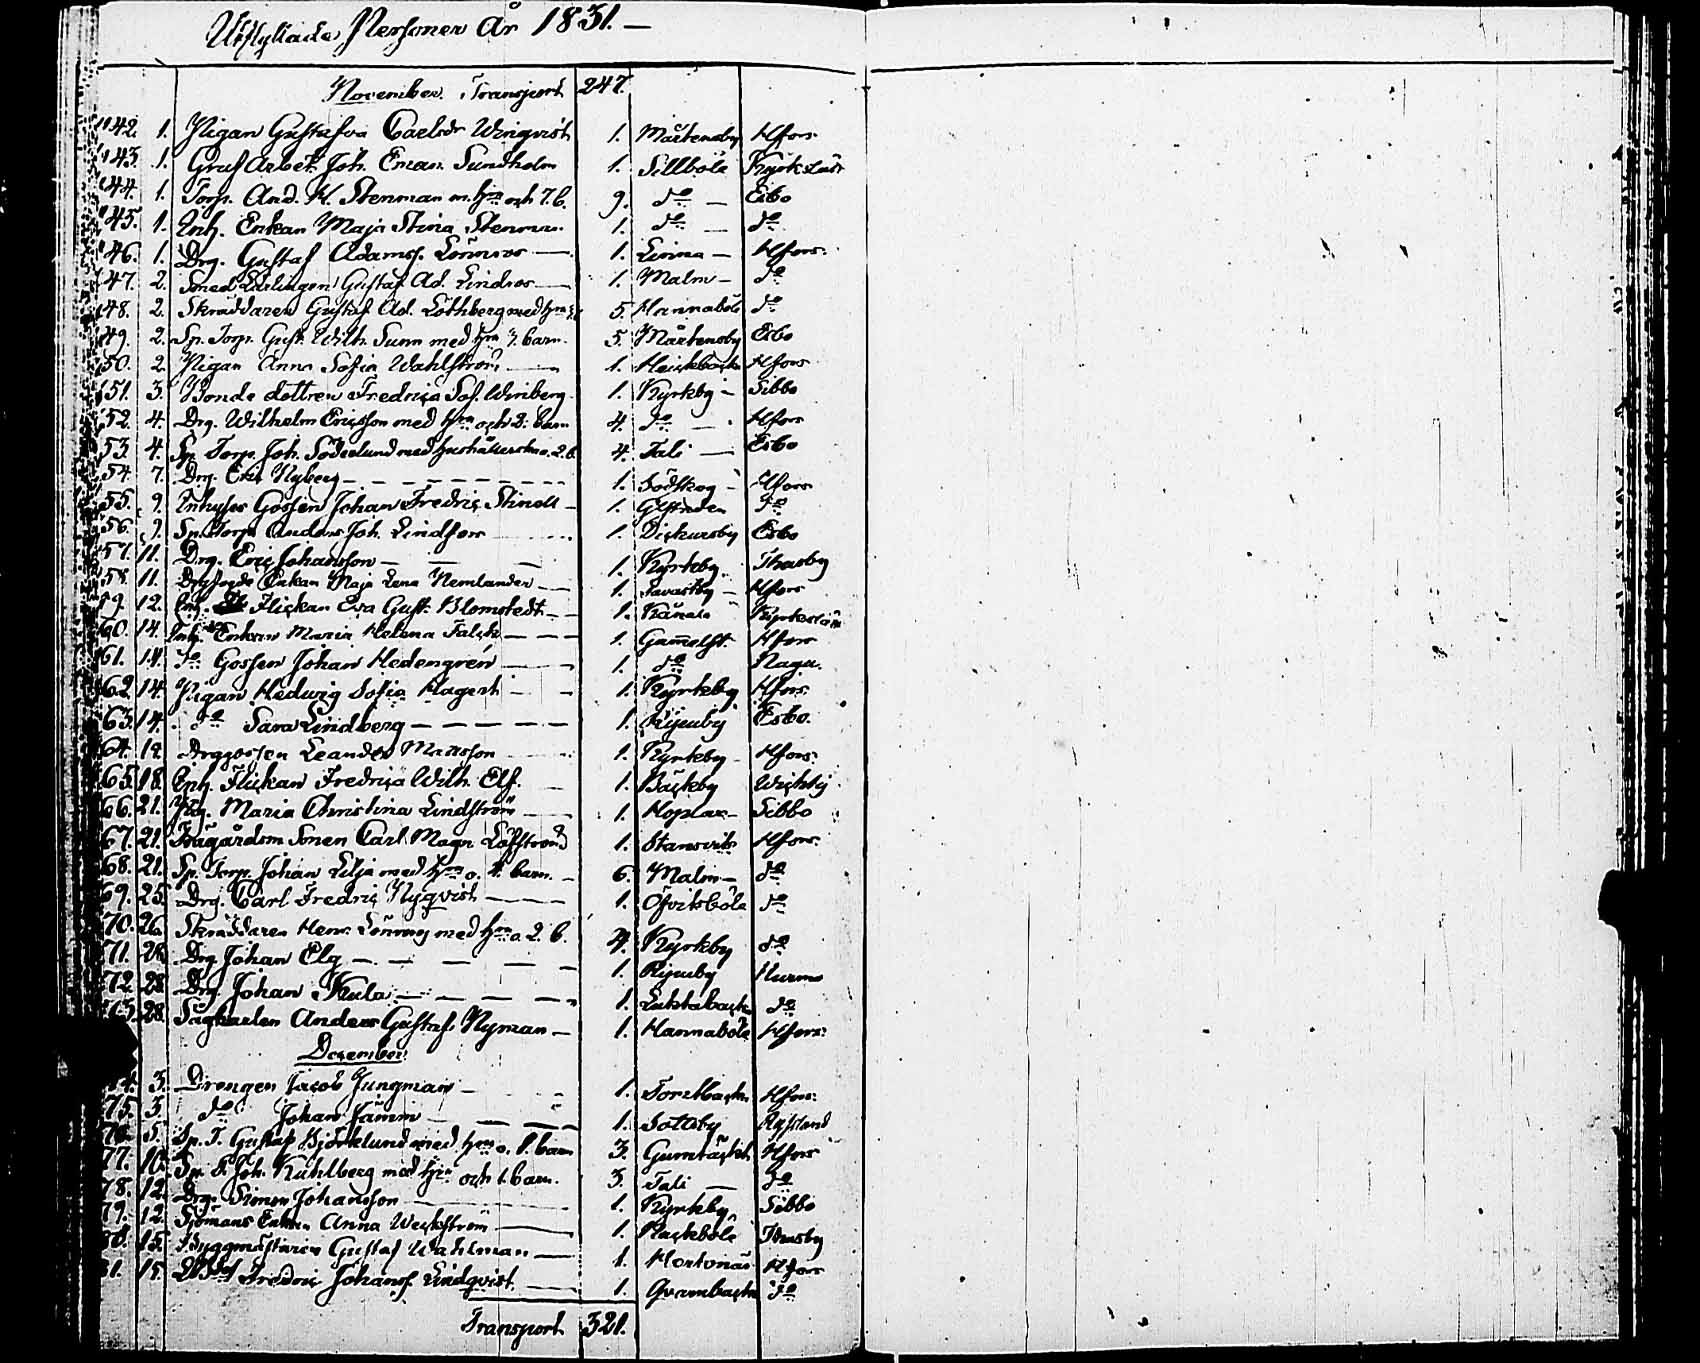 Utflyttade Personer År 1831.
November. Transport 247.
142. 1. Pigan Gustafva Carlsdr Winqvist 1. Mårtensby Hfors
143. 1. Gruf Arbet. Joh. Eman. Sundholm 1. Sillböle Kyrkslätt
144. 1. Torp. And. H. Stenman m. hru och 7. b. 9. do Esbo
145. 1. Inh. Enkan Maja Stina Stenman 1. do do
146. 1. Drg. Gustaf Adamss. Lönnros 1. Linna Hfors
147. 2. Smeds Lärlingen Gustaf Ad. Lindros 1. Malm do
148. 2. Skräddaren Gustaf Ad. Löthberg med hru 5. Hannaböle do
49. 2. Sp. Torp. Gust. Wilh. Sunn med hru 3. barn 5. Mårtensby Esbo
50. 2. Pigan Anna Sofia Wahlström 1. Hfors
151. 3. Bonde dottren Fredrica Sof. Winberg 1. Kyrkby Sibbo
52. 4. Drg. Wilhelm Ericsson med hru och 2. barn 4. do Hfors
53. 4. Sp. Torp. Joh. Söderlund med o. 2. b. 4. Tali Esbo
54. 7. Drg. Eric Nyberg 1. Södskog Hfors
55. 9. Inhyses Gossen Johan Fredric 1. do
56. 9. Sp. Torp. Anders Joh. Lindfors 1. Dickursby Esbo
57. 11. Drg. Eric Johansson 1. Kyrkby Thusby
58. 11. Enkan Maja Lena Nemlander 1. Tavastby Hfors
59. 12. Inh. Flickan Eva Gust. Blomstedt 1. Kånala Kyrkslätt
60. 14. Inh. Enkan Maria Helena Falck 1. Gammelst. Hfors
61. 14. do Gossen Johan Hedengrén 1. do Pargas
62. 14. Pigan Hedwig Sofia Hagert 1. Kyrkby Hfors
63. 14. do Sara Lindberg 1. Esbo
64. 14. Drggossen Leander Mattsson 1. Kyrkby Hfors
65. 18. Inh. Flickan Fredrica Wilh. Elf. 1. Backby Wichtis
66. 21. Pig. Maria Christina Lindström 1. Hoplax Sibbo
67. 21. Sonen Carl Magn. Löfström 1. Stansvik Hfors
68. 21. Sp. Torp. Johan Lilja med hru o. 4. barn 6. Malm do
69. 25. Drg. Carl Fredric Nyqvist 1. Öfvitsböle do
70. 26. Skräddaren Henr. Lönnroos med hru o. 2. b. 4. Kyrkby do
71. 26. Drg Johan Elg 1. Nurmo
72. 28. Drg. Johan Kula 1. do
73. 28. Sågkarlen Anders Gustafs Nyman 1. Hannaböle Hfors
December
74. 3. Drengen Jacob Jungman 1. Forsbacka Hfors
75. 3. do Johan Jämin 1. Sottby
76. 5. Sp. T. Gustaf Björklund med hru o. 1. barn 3. Gumtäckt Hfors
77. 10. Sp. T. Joh. Kuhlberg med hru och 1. barn. 3. Tali do
78. 12. Drg. Simon Johansson 1. Kyrkby Sibbo
79. 12. Sjömans Enkan Anna Weckström 1. Rackböle Thusby
80. 15. Byggmästaren Gustaf Wahlman 1. Hertonäs Hfors
81. 15. Fredric Johanss. Lindqvist 1. Qvarnbacka do
Transport 321.